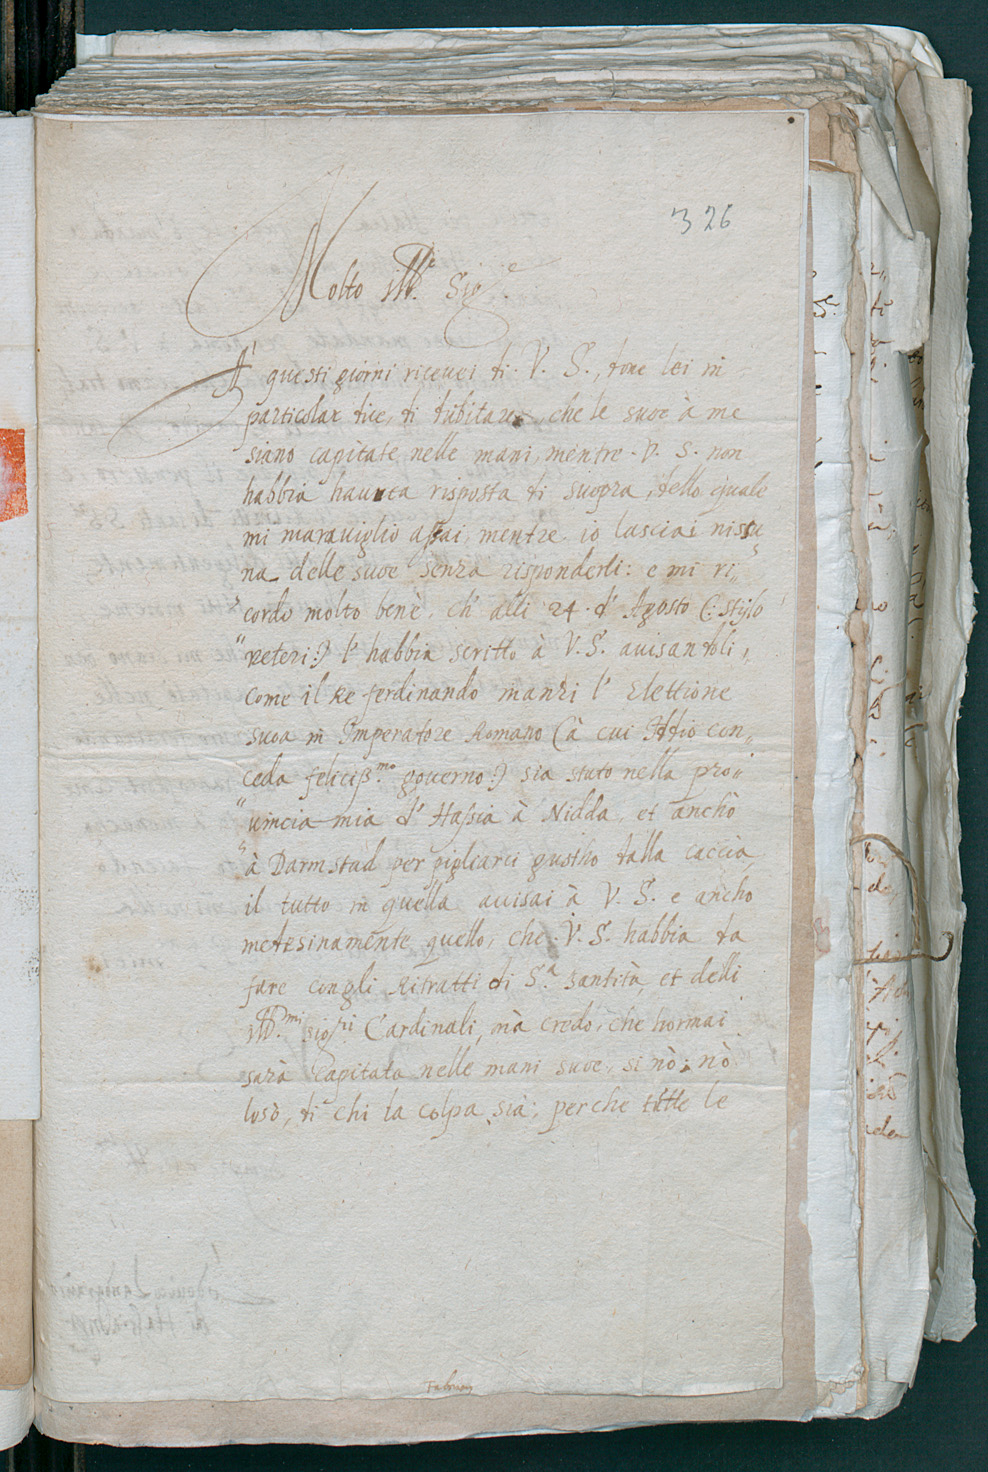 326
Molto Ill.re Sig.re
A' questi giorni ricevei di V. S., dove lei in
particolar dice, di dubitare, che le suoe à me
siano capitate nelle mani, mentre V. S. non
habbia hauuta risposta di suopra, dello quale
mi marauiglio assai, mentre io lasciai nissu„
na delle suoe senza risponderli: e mi ri„
cordo molto bene, ch' alli 24. d' Agosto (: stylo
veteri:) l' habbia scritto à V. S. auisandoli,
come il Re ferdinando manzi l' Elettione
suoa in Imperatore Romano (à cui Iddio con„
ceda feliciss.mo governo:) sia stato nella pro„
uincia mia d' Hassia à Nidda, et anchò
à Darmstad per pigliarci gustho dalla caccia,
il tutto in quella auisai à V. S. e ancho
medesinamente quello, che V. S. habbia da
fare con gli Ritratti di S.a Santità, et delli
Ill.mi sig.ri Cardinali, mà credo, che hormai
sarà capitata nelle mani suoe, si nò, nò
lo sò, di chi la colpa sia; perche tutte le